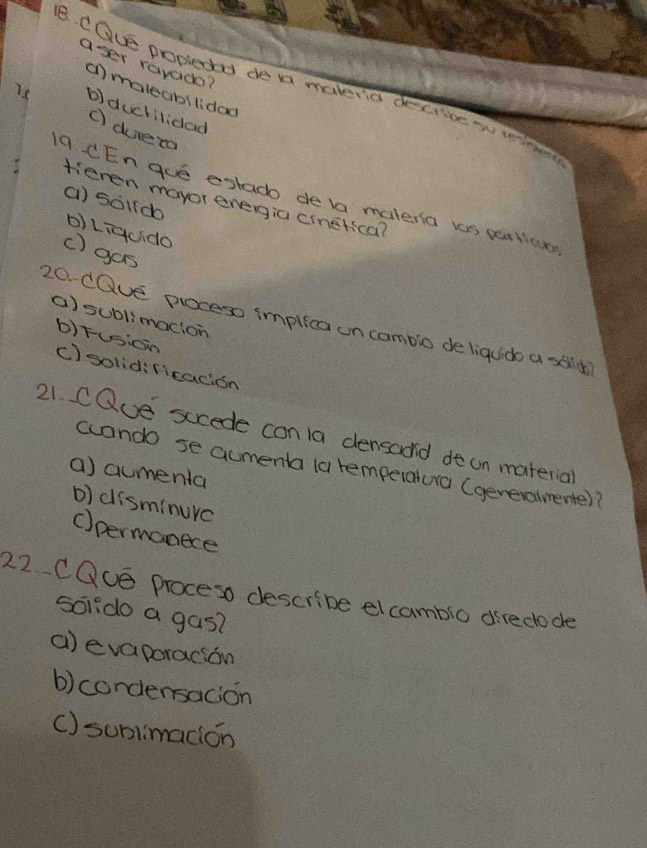 18. ¿Qué propiedad de la materia describe su
a ser rayado?
a) maleabilidad
b) ductilidad
c) dureza
19. ¿En qué estado de la materia las partículas
tienen mayor energía cinética?
a) sólido
b) Líquido
c) gas
20. ¿Qué proceso implica un cambio de liquido a sólido?
a) sublimación
b) Fusión
c) solidificación
21. ¿Qué sucede con la densadid de un material
cuando se aumenta la temperatura (generalmente)?
a) aumenta
b) disminuye
c) permanece
22. ¿Qué proceso describe el cambio directo de
sólido a gas?
a) evaporación
b) condensación
c) sublimación